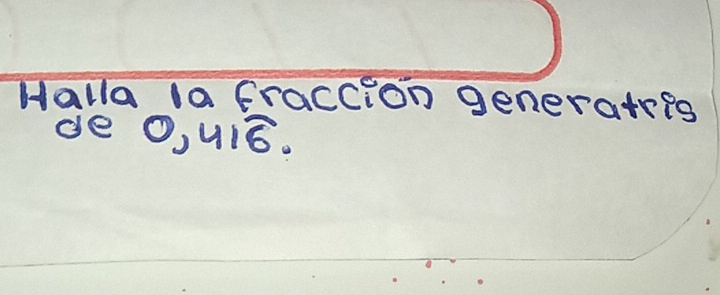 Halla la fracción generatris
de 0,416̂.